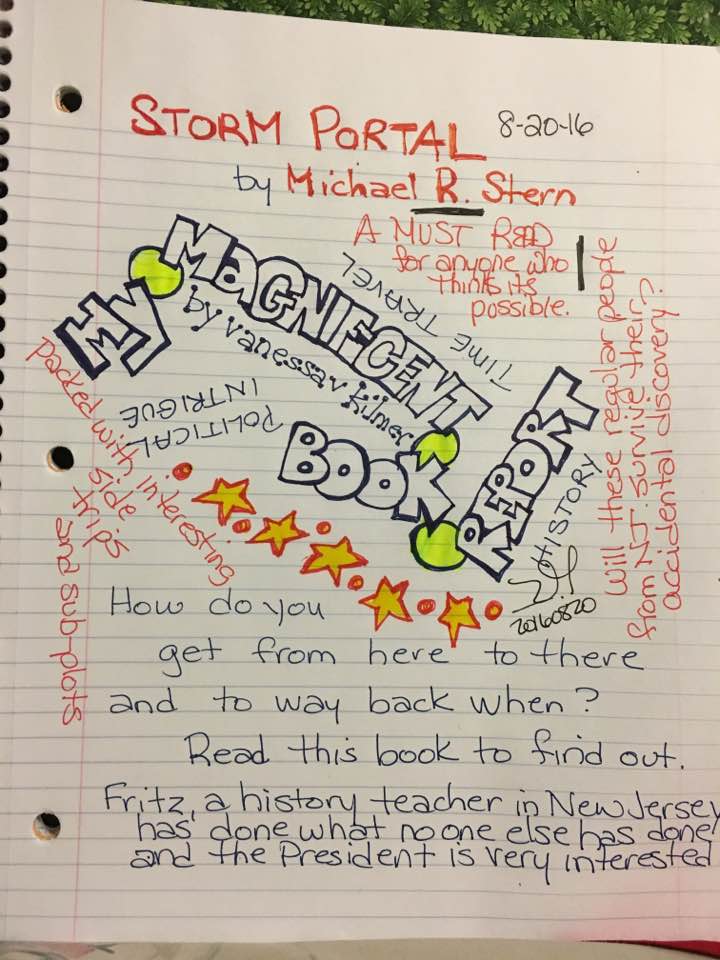 STORM PORTAL 8-20-16
by Michael R. Stern
A MUST READ
for anyone who
thinks its
possible.
TIME TRAVEL
My
MAGNIFICENT
by vanessav kilmer
BOOK
REPORT
POLITICAL
INTRIGUE
HISTORY
Will these regular people
from NJ. survive their
accidental discovery?
packed with interesting
side
trips
and sub-plots
20160820
How do you
get from here to there
and to way back when?
Read this book to find out.
Fritz, a history teacher in New Jersey
has done what no one else has done
and the President is very interested